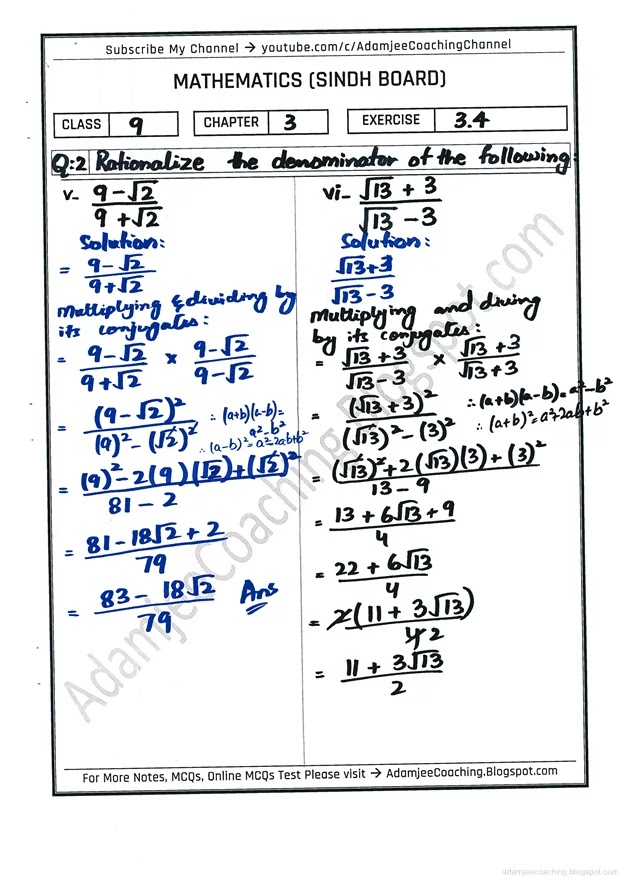 Subscribe My Channel → youtube.com/c/AdamjeeCoachingChannel
MATHEMATICS (SINDH BOARD)
CLASS 9 CHAPTER 3 EXERCISE 3.4
Q:2 Rationalize the denominator of the following:
v- (9 - √2)/(9 + √2)
Solution:
= (9 - √2)/(9 + √2)
Multiplying & dividing by
its conjugates:
= (9 - √2)/(9 + √2) × (9 - √2)/(9 - √2)
= (9 - √2)²/((9)² - (√2)²) ∴ (a+b)(a-b)=
a² - b²
∴ (a-b)² = a² - 2ab + b²
= ((9)² - 2(9)(√2) + (√2)²)/(81 - 2)
= (81 - 18√2 + 2)/79
= (83 - 18√2)/79 Ans
vi- (√13 + 3)/(√13 - 3)
Solution:
(√13 + 3)/(√13 - 3)
Multiplying and diving
by its conjugates:
= (√13 + 3)/(√13 - 3) × (√13 + 3)/(√13 + 3)
= (√13 + 3)²/((√13)² - (3)²) ∴ (a+b)(a-b) = a² - b²
∴ (a+b)² = a² + 2ab + b²
= ((√13)² + 2(√13)(3) + (3)²)/(13 - 9)
= (13 + 6√13 + 9)/4
= (22 + 6√13)/4
= 2(11 + 3√13)/4 2
= (11 + 3√13)/2
AdamjeeCoaching.blogspot.com
For More Notes, MCQs, Online MCQs Test Please visit → AdamjeeCoaching.Blogspot.com
adamjeecoaching.blogspot.com